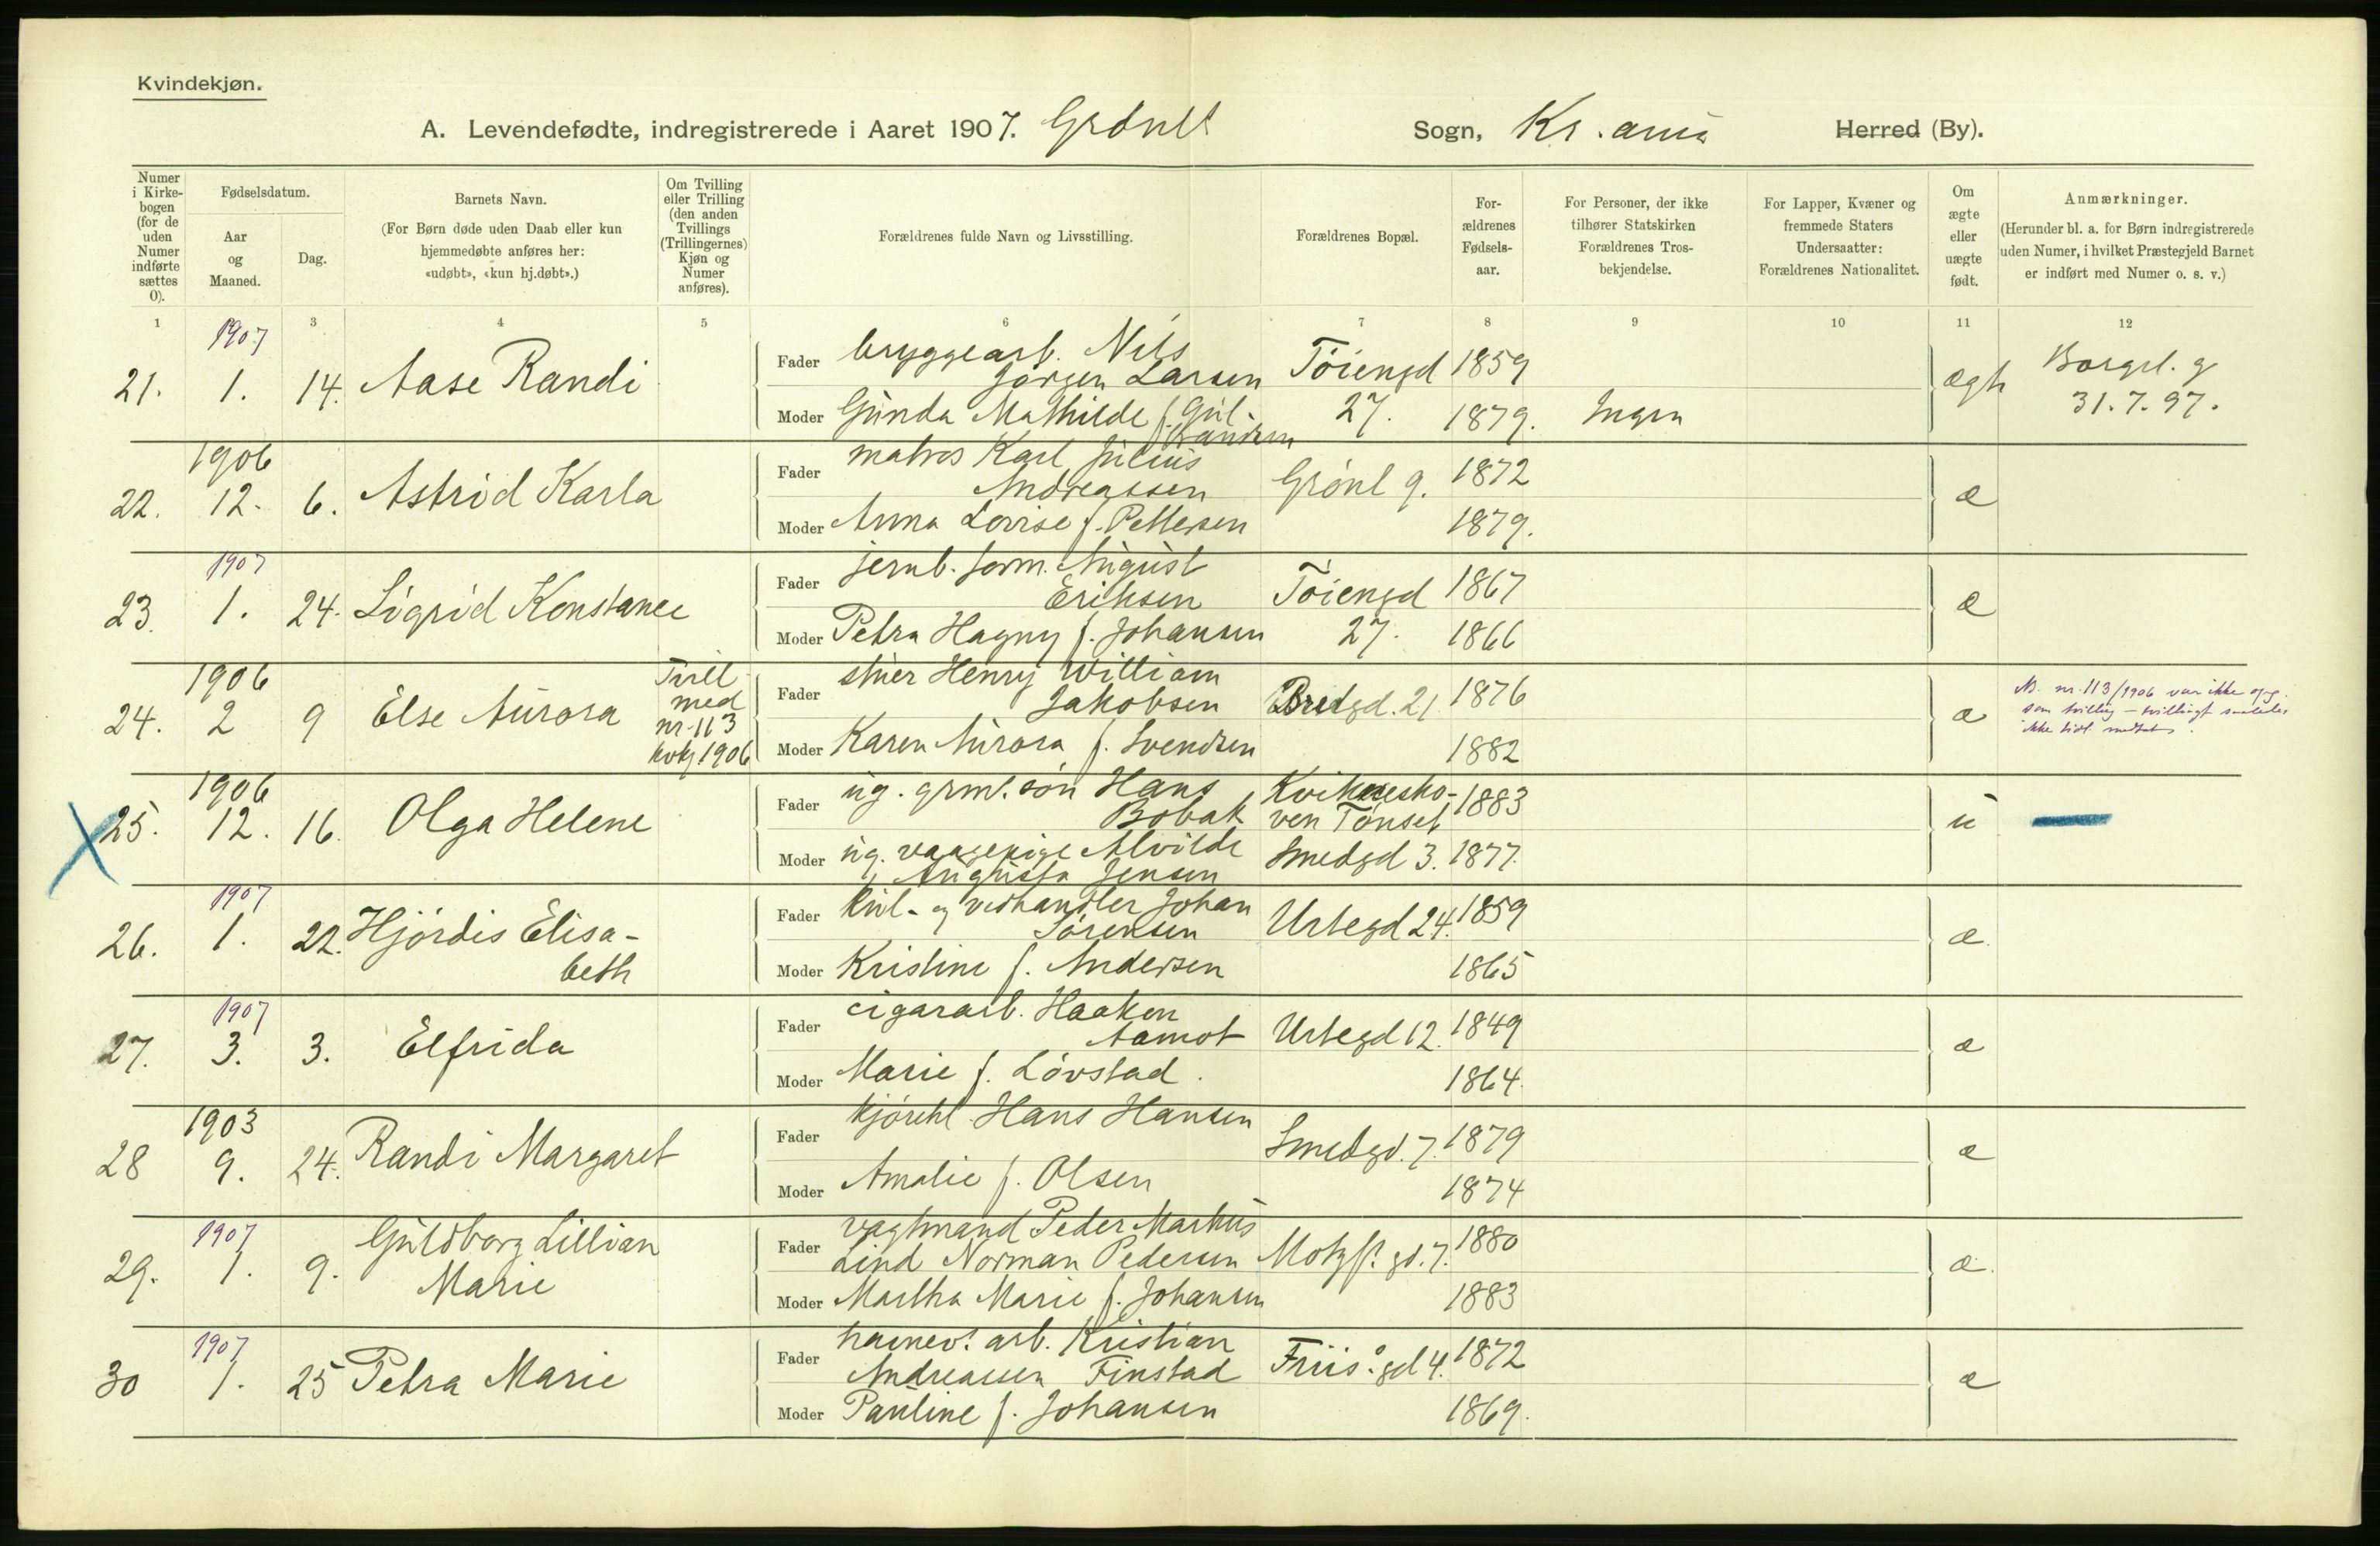 Kvindekjøn.
A. Levendefødte, indregistrerede i Aaret 1907. Grønl Sogn, Kr.ania Herred (By).
Numer i Kirkebogen (for de uden Numer indførte sættes 0).
Fødselsdatum.
Aar og Maaned.
Dag.
Barnets Navn.
(For Børn døde uden Daab eller kun hjemmedøbte anføres her: «udøbt», «kun hj.døbt».)
Om Tvilling eller Trilling (den anden Tvillings (Trillingernes) Kjøn og Numer anføres).
Forældrenes fulde Navn og Livsstilling.
Forældrenes Bopæl.
Forældrenes Fødselsaar.
For Personer, der ikke tilhører Statskirken Forældrenes Trosbekjendelse.
For Lapper, Kvæner og fremmede Staters Undersaatter: Forældrenes Nationalitet.
Om ægte eller uægte født.
Anmærkninger.
(Herunder bl. a. for Børn indregistrerede uden Numer, i hvilket Præstegjeld Barnet er indført med Numer o. s. v.)
1 3 4 5 6 7 8 9 10 11 12
21. 1907 1. 14. Aase Randi
Fader bryggearb. Nils
Jørgen Larsen Töiengd 1859
Moder Gunda Mathilde f. Gul-
brandsen 27. 1879. Ingen
ægte Borgerl. g
31.7.97.
22. 1906 12. 6. Astrid Karla
Fader matros Karl Julius
Andreassen Grönl 9. 1872
Moder Anna Lovise f. Pettersen 1879.
æ
23. 1907 1. 24. Sigrid Konstance
Fader jernb. form. August
Eriksen Töiengd 1867
Moder Petra Hagny f. Johansen 27. 1866
æ
24. 1906 2 9 Else Aurora
Tvill
med
nr. 113
1906
Fader stuer Henry William
Jakobsen Bredgd. 21. 1876
Moder Karen Aurora f. Svendsen 1882
æ NB. nr. 113/1906 var ikke opg.
som tvilling – saaledes
ikke tidl.
25. 1906 12. 16. Olga Helene
Fader ug. grm. søn Hans
Bobak Kvikneskoven
Tönset 1883
Moder ug. Alvilde
Augusta Jensen Smedgd 3. 1877.
u
26. 1907 1. 22. Hjördis Elisa-
beth
Fader kul- og vedhandler Johan
Sörensen Urtegd 24. 1859
Moder Kristine f. Andersen 1865
æ
27. 1907 3. 3. Elfrida
Fader cigararb. Haaken
Aamot Urtegd 12. 1849
Moder Marie f. Lövstad. 1864.
æ
28 1903 9. 24. Randi Margaret
Fader kjörekl Hans Hansen Smedgd. 7. 1879
Moder Amalie f. Olsen 1874
æ
29. 1907 1. 9. Guldborg Lillian
Marie
Fader vagtmand Peder Markus
Lind Norman Pedersen Motzf. gd. 7. 1880
Moder Martha Marie f. Johansen 1883
æ
30 1907 1. 25 Petra Marie
Fader havnev. arb. Kristian
Andreassen Finstad Friis. gd 4. 1872
Moder Pauline f. Johansen 1869.
æ